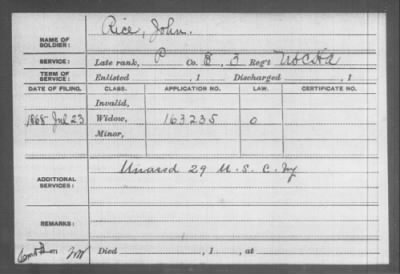 NAME OF SOLDIER: Rice, John.
SERVICE: Late rank, P Co. B, 3 Reg't U S C H A
TERM OF SERVICE: Enlisted , 1 Discharged , 1
DATE OF FILING. CLASS. APPLICATION NO. LAW. CERTIFICATE NO.
Invalid,
1868 Jul 23 Widow, 163235 O
Minor,
ADDITIONAL SERVICES: Unassd 29 U. S. C. Inf
REMARKS:
Died , 1 , at